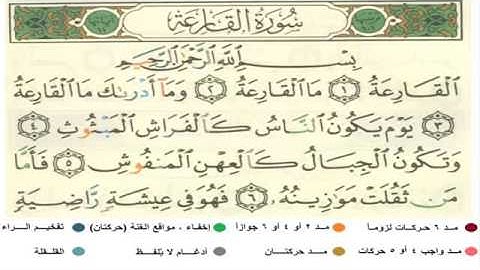 سُورَةُ القَارِعَةِ
بِسْمِ اللَّهِ الرَّحْمَٰنِ الرَّحِيمِ
الْقَارِعَةُ ١ مَا الْقَارِعَةُ ٢ وَمَا أَدْرَاكَ مَا الْقَارِعَةُ
٣ يَوْمَ يَكُونُ النَّاسُ كَالْفَرَاشِ الْمَبْثُوثِ ٤
وَتَكُونُ الْجِبَالُ كَالْعِهْنِ الْمَنْفُوشِ ٥ فَأَمَّا
مَن ثَقُلَتْ مَوَازِينُهُ ٦ فَهُوَ فِي عِيشَةٍ رَّاضِيَةٍ
مد ٦ حركات لزوما مد ٢ أو ٤ أو ٦ جوازاً إخفاء ، مواقع الغنة (حركتان) تفخيم الراء
مد واجب ٤ أو ٥ حركات مد حركتان أدغام لا يُلفظ القلقلة